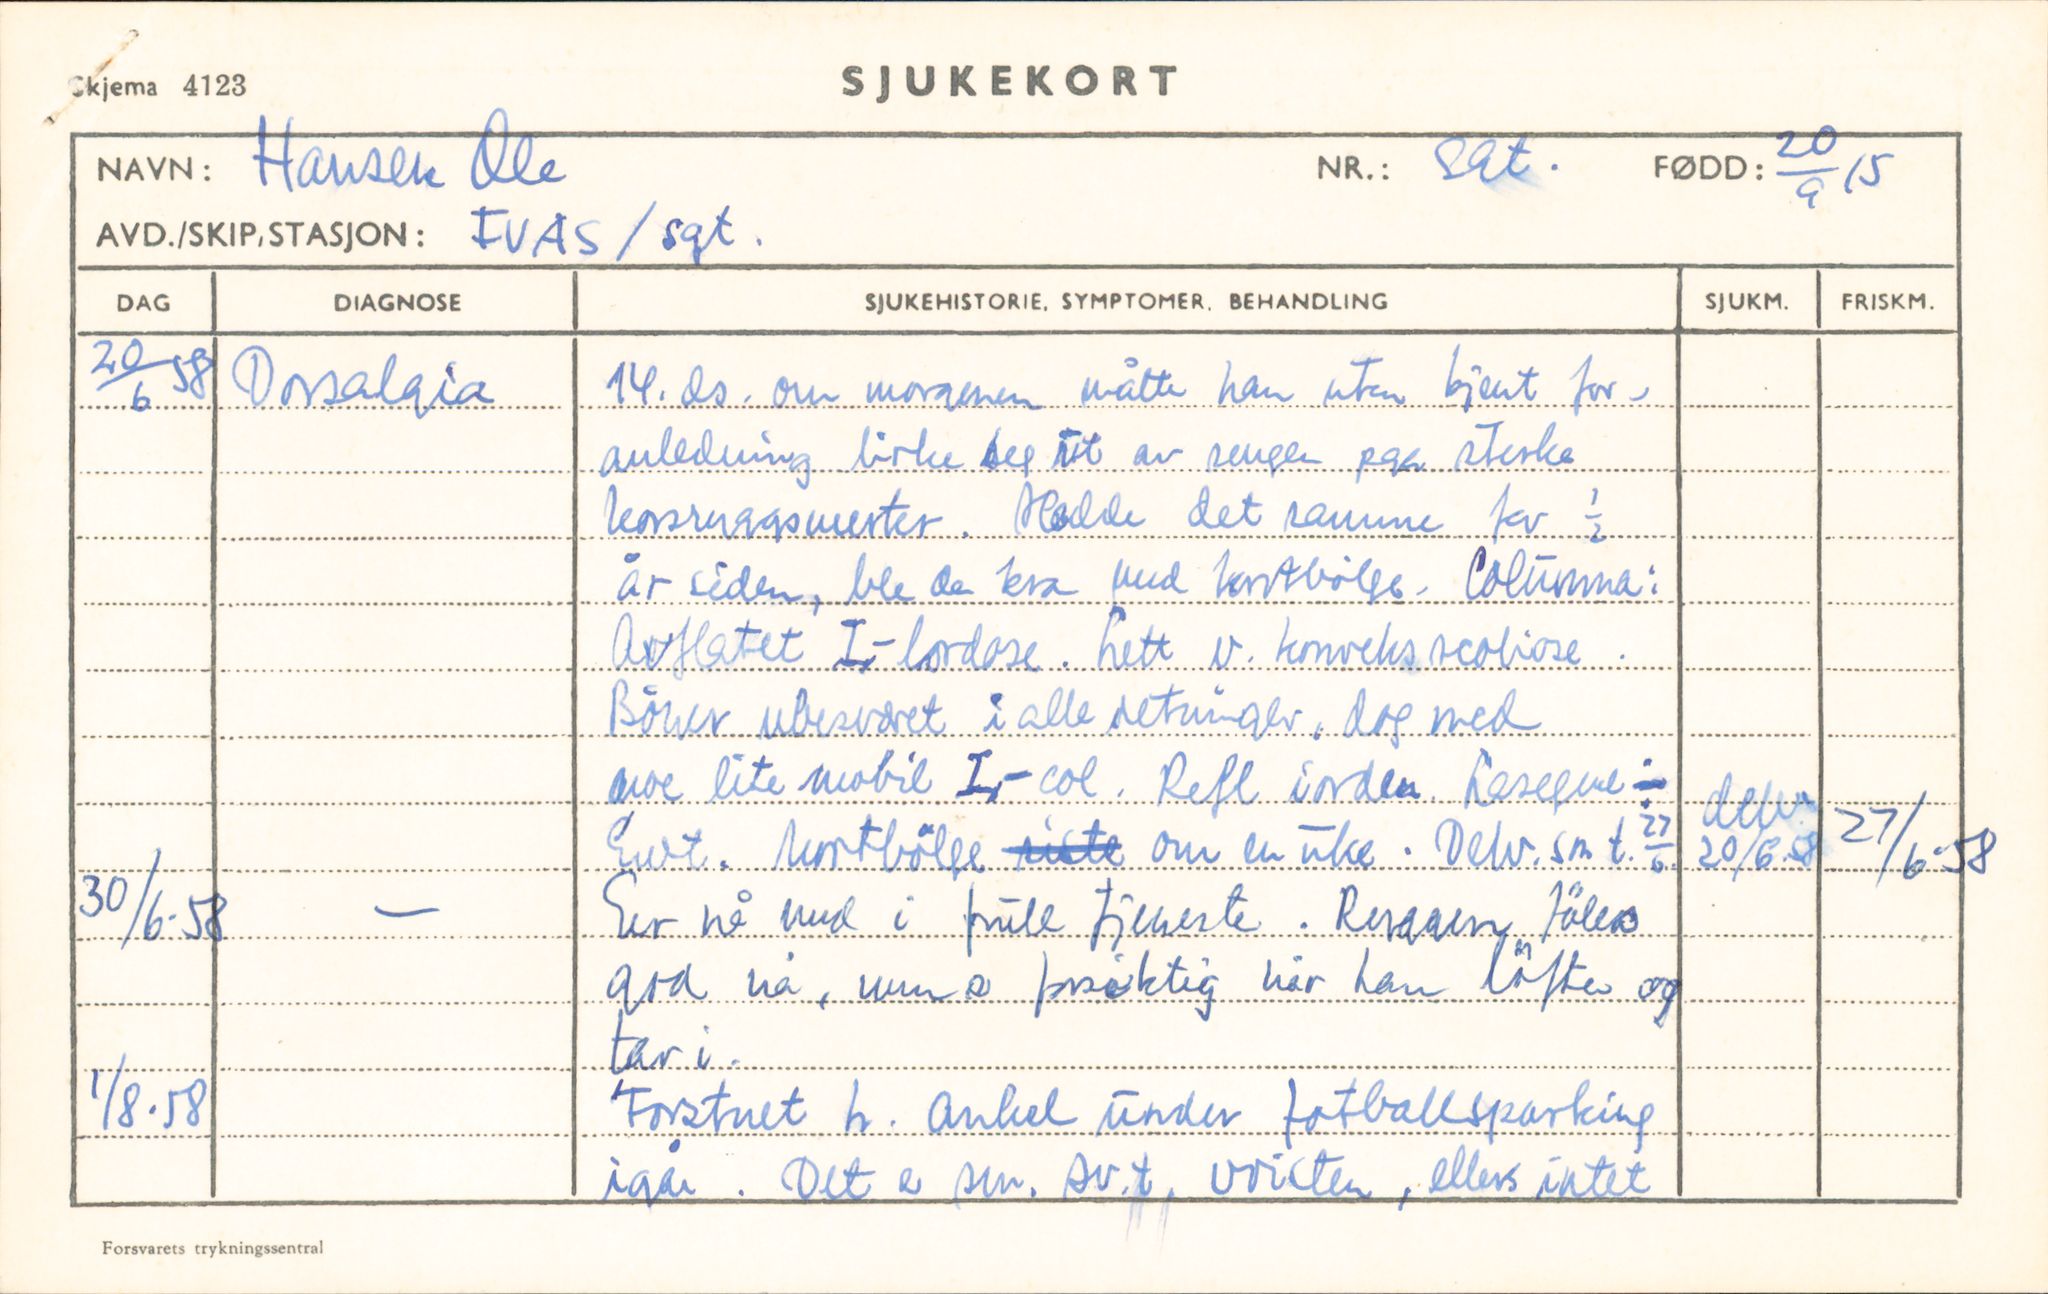 Skjema 4123
SJUKEKORT
NAVN: Hansen Ole NR.: sgt. FØDD: 20/9 15
AVD./SKIP, STASJON: IVAS / sgt.
DAG DIAGNOSE SJUKEHISTORIE, SYMPTOMER, BEHANDLING SJUKM. FRISKM.
20/6 58 Dorsalgia 14. ds. om morgenen måtte han uten kjent for-
anledning lirke seg ut av sengen pga sterke
korsryggsmerter. Hadde det samme for 1/2
år siden, ble da bra med kortbölge. Columna:
Avflatet L-lordose. Lett v. konveks scoliose.
Böyer ubesværet i alle retninger, dog med
noe lite mobil L-col. Refl i orden. Lasegue ÷
Evt. kortbölge om en uke. Delv. sm t. 27/6. delv. 20/6.58 27/6-58
30/6-58 — Er nå med i full tjeneste. Ryggen föles
god nå, men e forsiktig når han löfter og
tar i.
1/8.58 Forstuet h. ankel under fotballsparking
igår. Det e sm. sv.t. vristen, ellers intet
Forsvarets trykningssentral